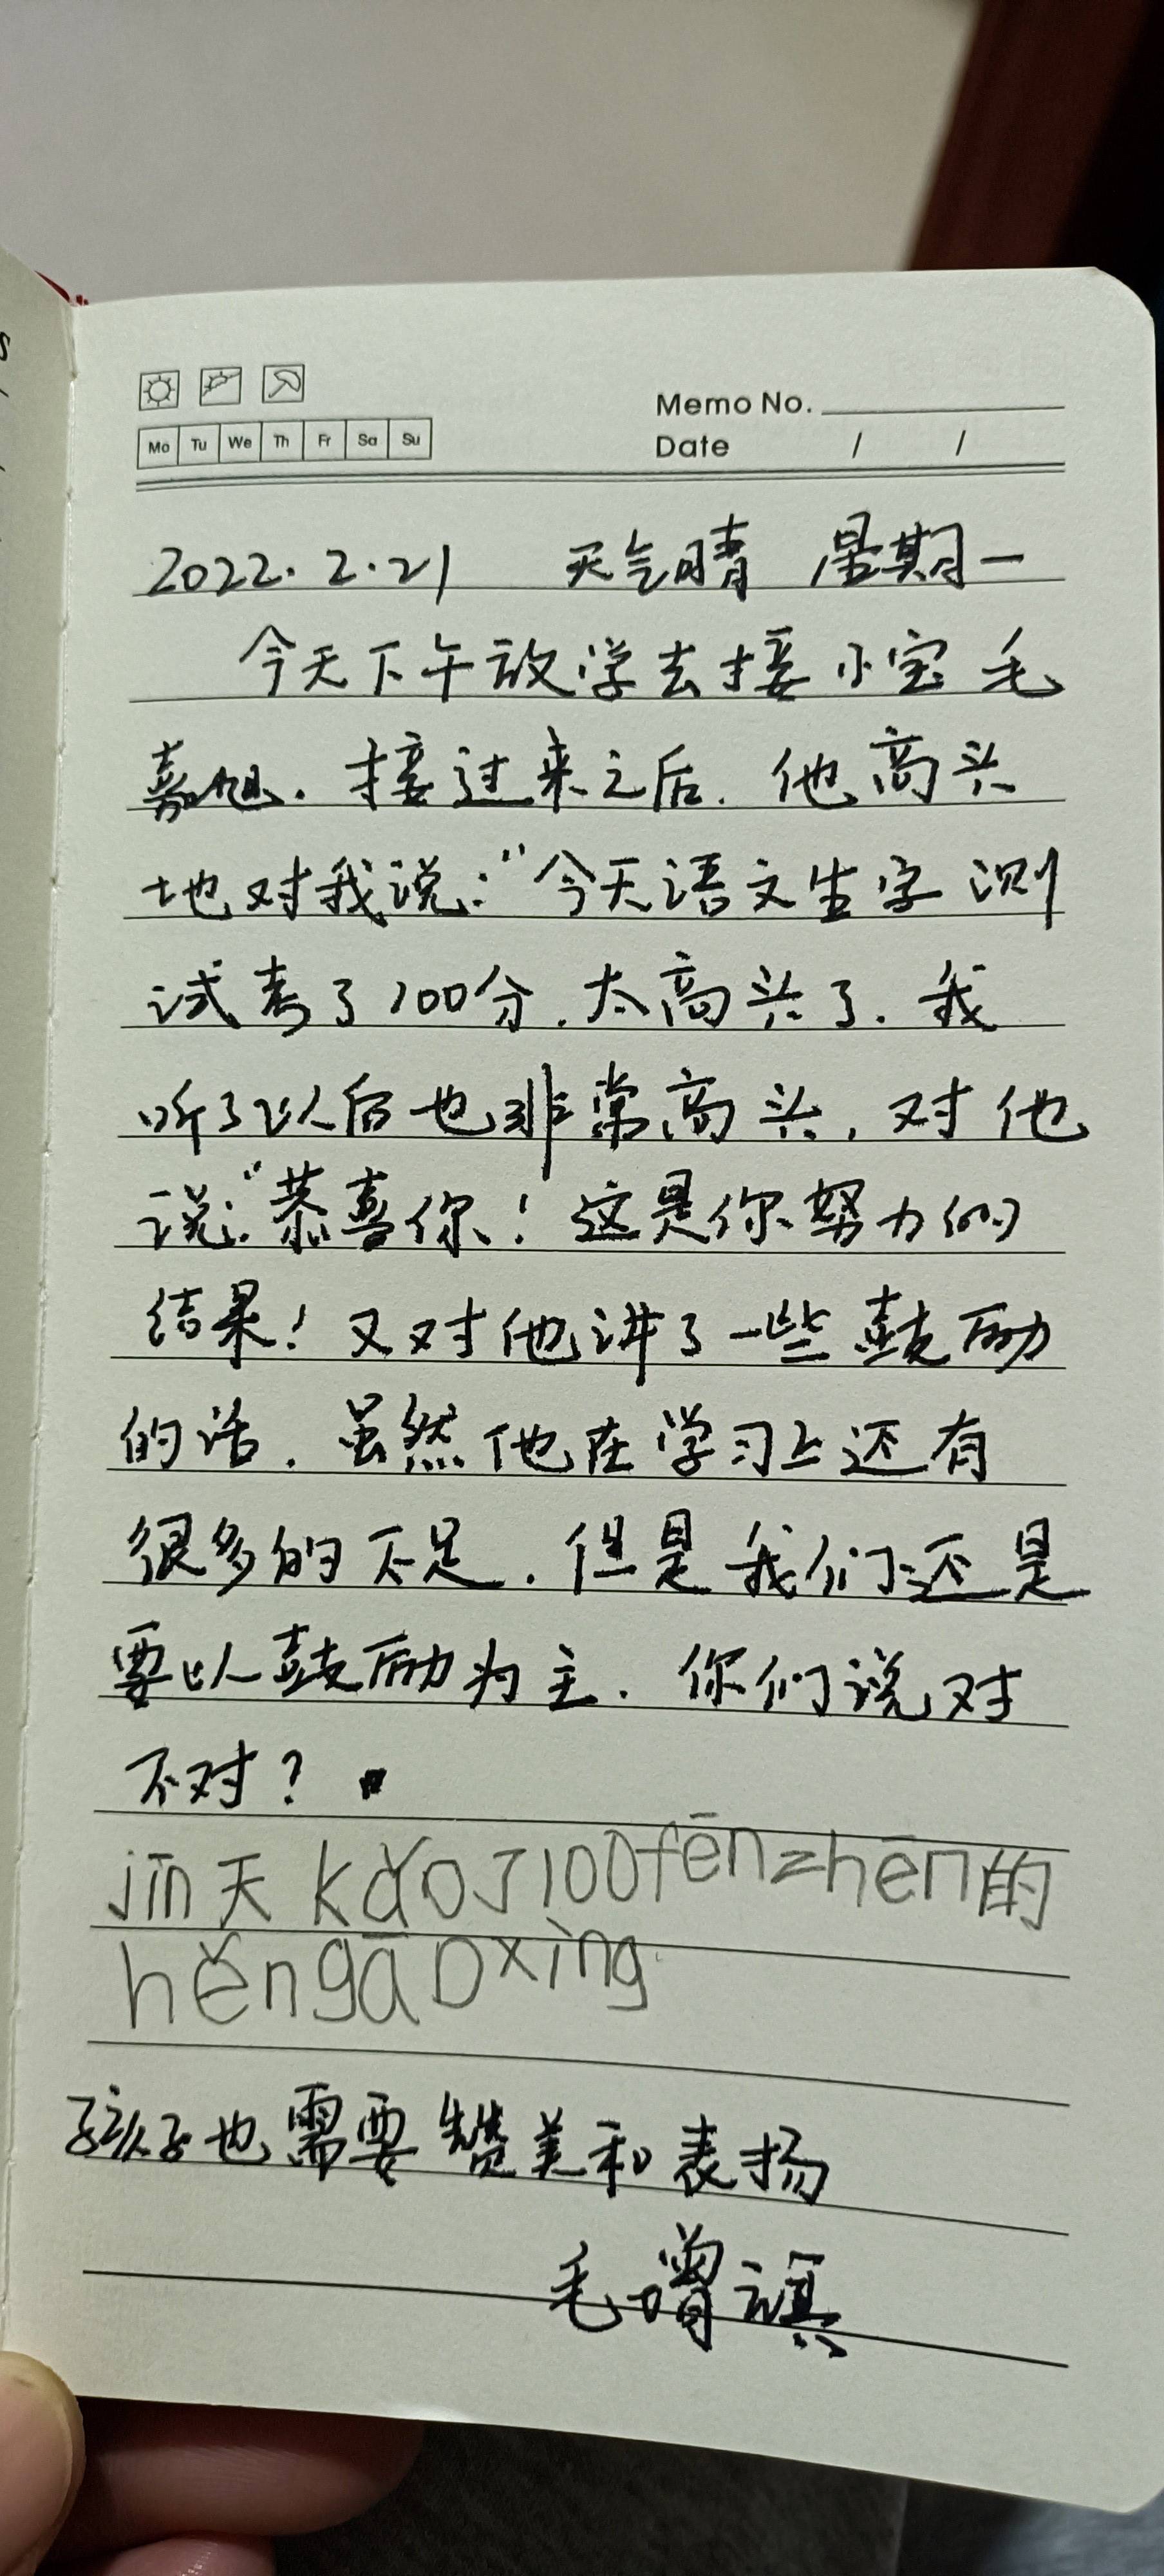 Memo No.
Mo Tu We Th Fr Sa Su
Date / /
2022.2.21 天气晴 星期一
今天下午放学去接小宝毛
嘉旭.接过来之后.他高兴
地对我说:"今天语文生字测
试考了100分.太高兴了.我
听了以后也非常高兴,对他
说:"恭喜你!这是你努力的
结果!又对他讲了一些鼓励
的话.虽然他在学习上还有
很多的不足.但是我们还是
要以鼓励为主.你们说对
不对?
jīn天kǎo了100fēnzhēn的
hěngāoxìng
孩子也需要赞美和表扬
毛增祺